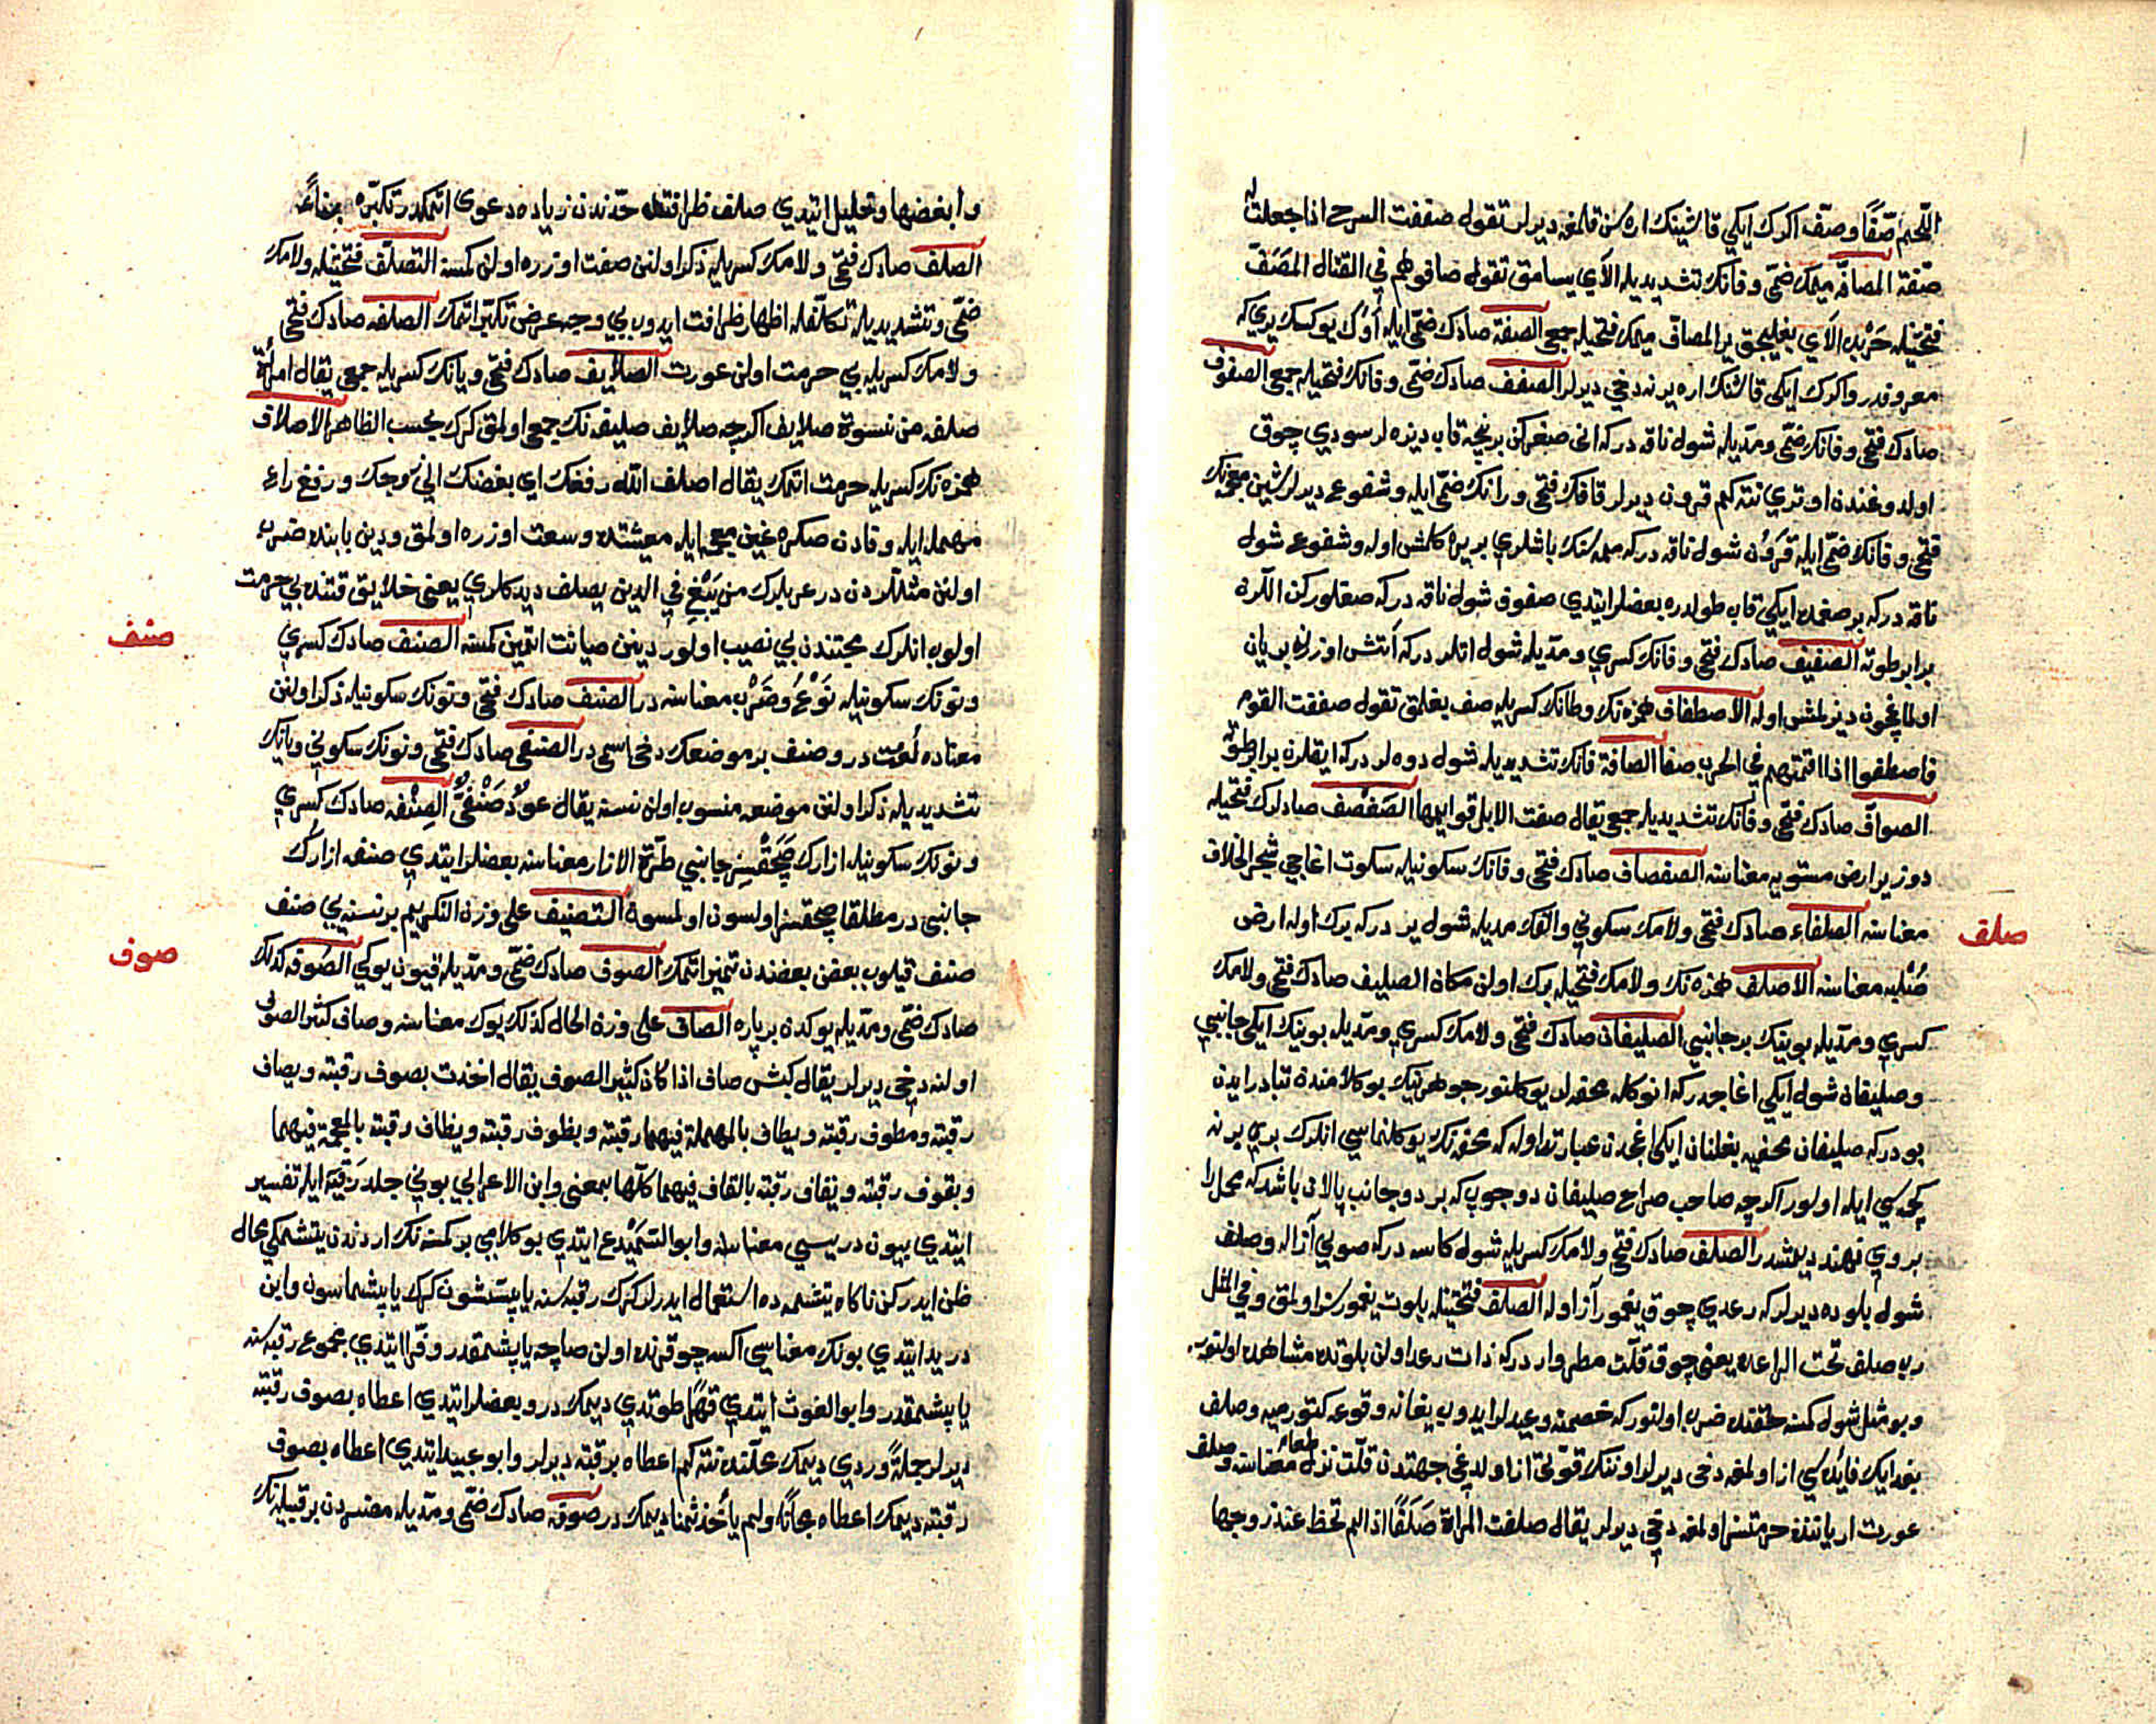 اللّحم صَفًّا وصفّ اكرك ايكي قاشينك اره سن قلمغه ديرلر تقول صففت السرج اذا جعلت له
صفّة المصافّه ميمك ضمّى وفانك تشديديله الاي يسامق تقول صافوهم في القتال المصفّ
فتحتيله حَرْبده الاي بغليجق ير المصافّ ميمك فتحيله جمعى الصفّة صادك ضمّى ايله أوك يوكسك يري كه
معروفدر واكرك ايكى قاشنك اره يرنه دخى ديرلر الصفف صادك ضمّى وفانك فتحيله جمعى الصفوف
صادك فتحى وفانك ضمّى ومدّيله شول ناقه دركه انى صغركن برنچه قاب ديزه لر سودي چوق
اولدوغندن اوتري نته كم قرون ديرلر قافك فتحى ورانك ضمّى ايله وشفوع ديرلر شين معجمه نك
فتحى وفانك ضمّى ايله قرون شول ناقه دركه ممه سنك باشلري بريره كلمش اوله وشفوع شول
ناقه دركه بر صغمده ايكي قاب طولدره بعضلر ايتدي صفوف شول ناقه دركه صغلوركن اللرن
برابر طوته الصفيف صادك فتحى وفانك كسري ومدّيله شول اتلر دركه آتش اوزرنه بريان
اولماغچون ديزلمش اوله الاصطفاف همزه نك وطانك كسريله صف بغلمق تقول صففت القوم
فاصطفوا اذا اقمتهم في الحرب صفا الصافة فانك تشديديله شول دوه لر دركه ايقلرن برابر طوته
الصوافّ صادك فتحى وفانك تشديديله جمعى يقال صفت الابل قوايمها الصفصف صادلرك فتحيله
دوز ير ارض مستويه معناسنه الصفصاف صادك فتحى وفانك سكونيله سكوت اغاجي شجر الخلاف
معناسنه الصلفاء صادك فتحى ولامك سكوني والفك مديله شول ير دركه برك اوله ارض
صُلْبه معناسنه الاصلف همزه نك ولامك فتحيله برك اولن مكان الصليف صادك فتحى ولامك
كسري ومدّيله بوينك بر جانبي الصليفان صادك فتحى ولامك كسري ومدّيله بوينك ايكى جانبي
وصليفان شول ايكي اغاجدركه انوكله محفه لر يوكلنور جوهرينك بو كلامندن تبادر ايدن
بودركه صليفان محفيه بغلنان ايكى اغجدن عبارت اوله كه محفه نك يوكلنماسي انلرك بري برنه
كچمسي ايله اولور اكرچه صاحب صراح صليفان دو چوب كه بر دو جانب پالان باشد كه محمل را
بروي نهند ديمشدر الصلف صادك فتحى ولامك كسريله شول كاسه دركه صويي آز اله وصلف
شول بلوده ديرلر كه رعدي چوق يغموري آز اوله الصلف فتحتيله بلوت يغمورسز اولمق وفي المثل
رب صلف تحت الراعده يعنى چوق قلّت مطر واردركه ذات رعد اولن بلوتده مشاهده اولنور
وبو مثل شول كمسه حقنده ضرب اولنور كه خصمنه وعيدلر ايدوب يغانه وقوعه كتورميه وصلف
بغدايك فايده سي از اولمغه دخى ديرلر اوتنك قوّتى از اولدغى جهتدن قلّت نزل طعام معناسنه وصلف
عورت ارياننده حرمتسز اولمغه دخى ديرلر يقال صلفت المراة صَلَفًا اذا لم تحظ عند زوجها
صلف
وابغضها وخليل ايتدي صلف ظرافتده حدّندن زياده دعوى اتمكدر تكبّره
الصلف صادك فتحى ولامك كسريله ذكر اولنن صفت اوزره اولن كمسه التصلّف فتحتيله ولامك
ضمّى وتشديديله تكلّفله اظهار ظرافت ايدوب بي وجه عرض تكبّر اتمك الصلفه صادك فتحى
ولامك كسريله بي حرمت اولن عورت الصلايف صادك فتحى ويانك كسريله جمعى يقال امرأة
صلفه من نسوة صلايف اكرچه صلايف صليفه نك جمعى اولمق كرك بحسب الظاهر الاصلاف
همزه نك كسريله حرمت اتمك يقال اصلف الله رفغك اي بغضك الى زوجك ورفغ راء
مهمله ايله وفادن صكره غين معجمه ايله معيشتده وسعت اوزره اولمق ودين بابنده ضرب
اولنن مثللردن در عربلرك من يَبْغِ في الدين يصلف ديدكلري يعنى خلايق قتنده بي حرمت
اولوب انلرك محبتندن بي نصيب اولور دينن صيانت اتمين كمسه الصنف صادك كسري
ونونك سكونيله نَوْعٌ وضَرْبٌ معناسنه در الصنف صادك فتحى ونونك سكونيله ذكر اولنن
معناده لغت در وصنف بر موضعك دخى اسمى در الصنفى صادك فتحى ونونك سكوني ويانك
تشديديله ذكر اولنن موضعه منسوب اولن نسنه يقال عودٌ صَنْفىٌّ الصِنْفه صادك كسري
ونونك سكونيله ازارك صَچَقْسِز جانبي طرّة الازار معناسنه بعضلر ايتدي صنفه ازارك
جانبى در مطلقا صچقسز اولسون اولمسون التصنيف على وزن التكريم بر نسنه يي صنف
صنف قيلوب بعضن بعضندن تميز اتمك الصوف صادك ضمّى ومدّيله قيون يوكي الصوفه كذلك
صادك ضمّى ومدّيله يوكدن بر پاره الصاف على وزن الحال كذلك يوك معناسنه وصاف كثير الصوف
اولنه دخى ديرلر يقال كبش صاف اذا كان كثير الصوف يقال اخذت بصوف رقبته وبصاف
رقبته وبطوف رقبته وبطاف بالمهملة فيهما رقبته وبظوف رقبته وبظاف رقبته بالمعجمة فيهما
وبقوف رقبته وبقاف رقبته بالقاف فيهما كلّها بمعنى وابن الاعرابي بويني جلد رَقَبَه ايله تفسير
ايتدي بيون دريسي معناسنه وابو السَّمَيْدع ايتدي بو كلامي بر كمسه نك اردندن يتشمكي محال
ظن ايدركن ناكاه يتشمه ده استعمال ايدرلر كرك رقبه سنه يا پشسون كرك يا پشماسون وابن
دريد ايتدي بونك معناسي اكسه چوقرنده اولن صاچه يا پشمقدر وفرّا ايتدي مجموع رقبه سنه
يا پشمقدر وابو الغوث ايتدي قهرًا طوتدي ديمك در وبعضلر ايتدي اعطاه بصوف رقبته
ديرلر جملةً وردي ديمك محلنده نته كم اعطاه برقبته ديرلر وابو عبيد ايتدي اعطاه بصوف
رقبته ديمك اعطاه مجانًا ولم يأخذ ثمنا ديمك در صوفه صادك ضمّى ومدّيله مضردن بر قبيله نك
صنف
صوف